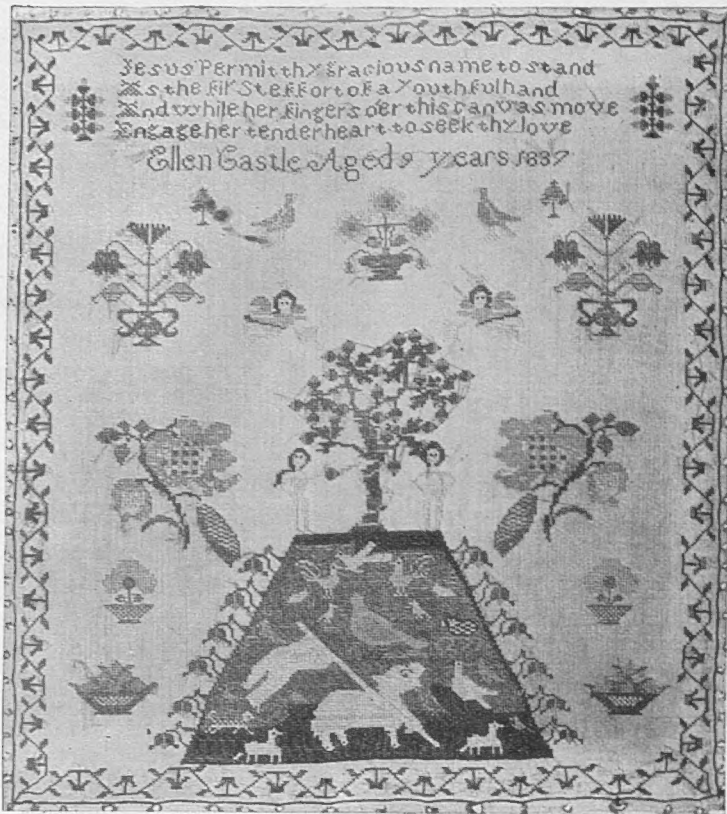 Jesus Permit thy gracious name to stand
As the first effort of a Youthful hand
And while her fingers o'er this canvas move
Engage her tender heart to seek thy love
Ellen Castle Aged 9 years 1837